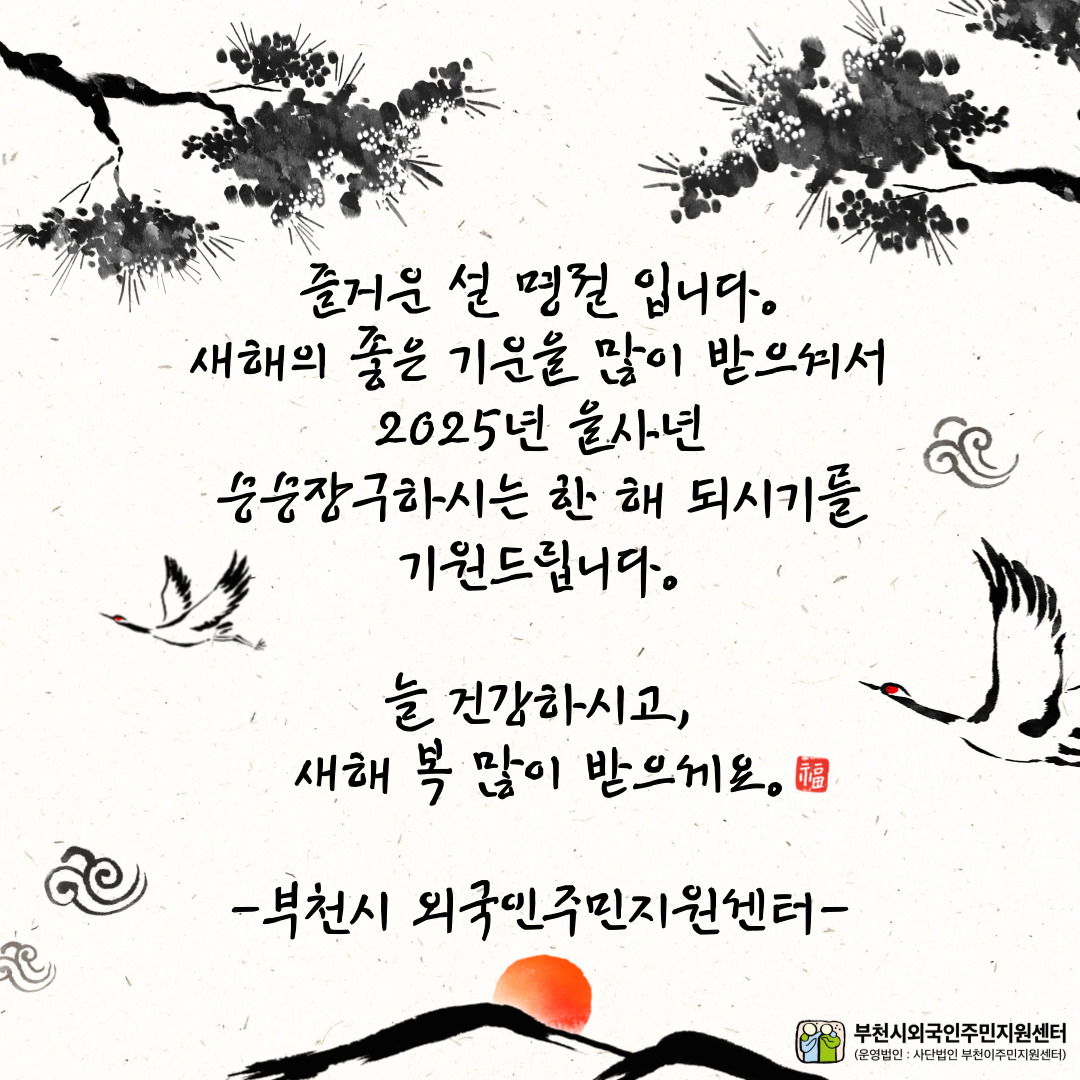 즐거운 설 명절 입니다.
새해의 좋은 기운을 많이 받으셔서
2025년 을사년
승승장구하시는 한 해 되시기를
기원드립니다.
늘 건강하시고,
새해 복 많이 받으세요.
福
-부천시 외국인주민지원센터-
부천시외국인주민지원센터
(운영법인 : 사단법인 부천이주민지원센터)